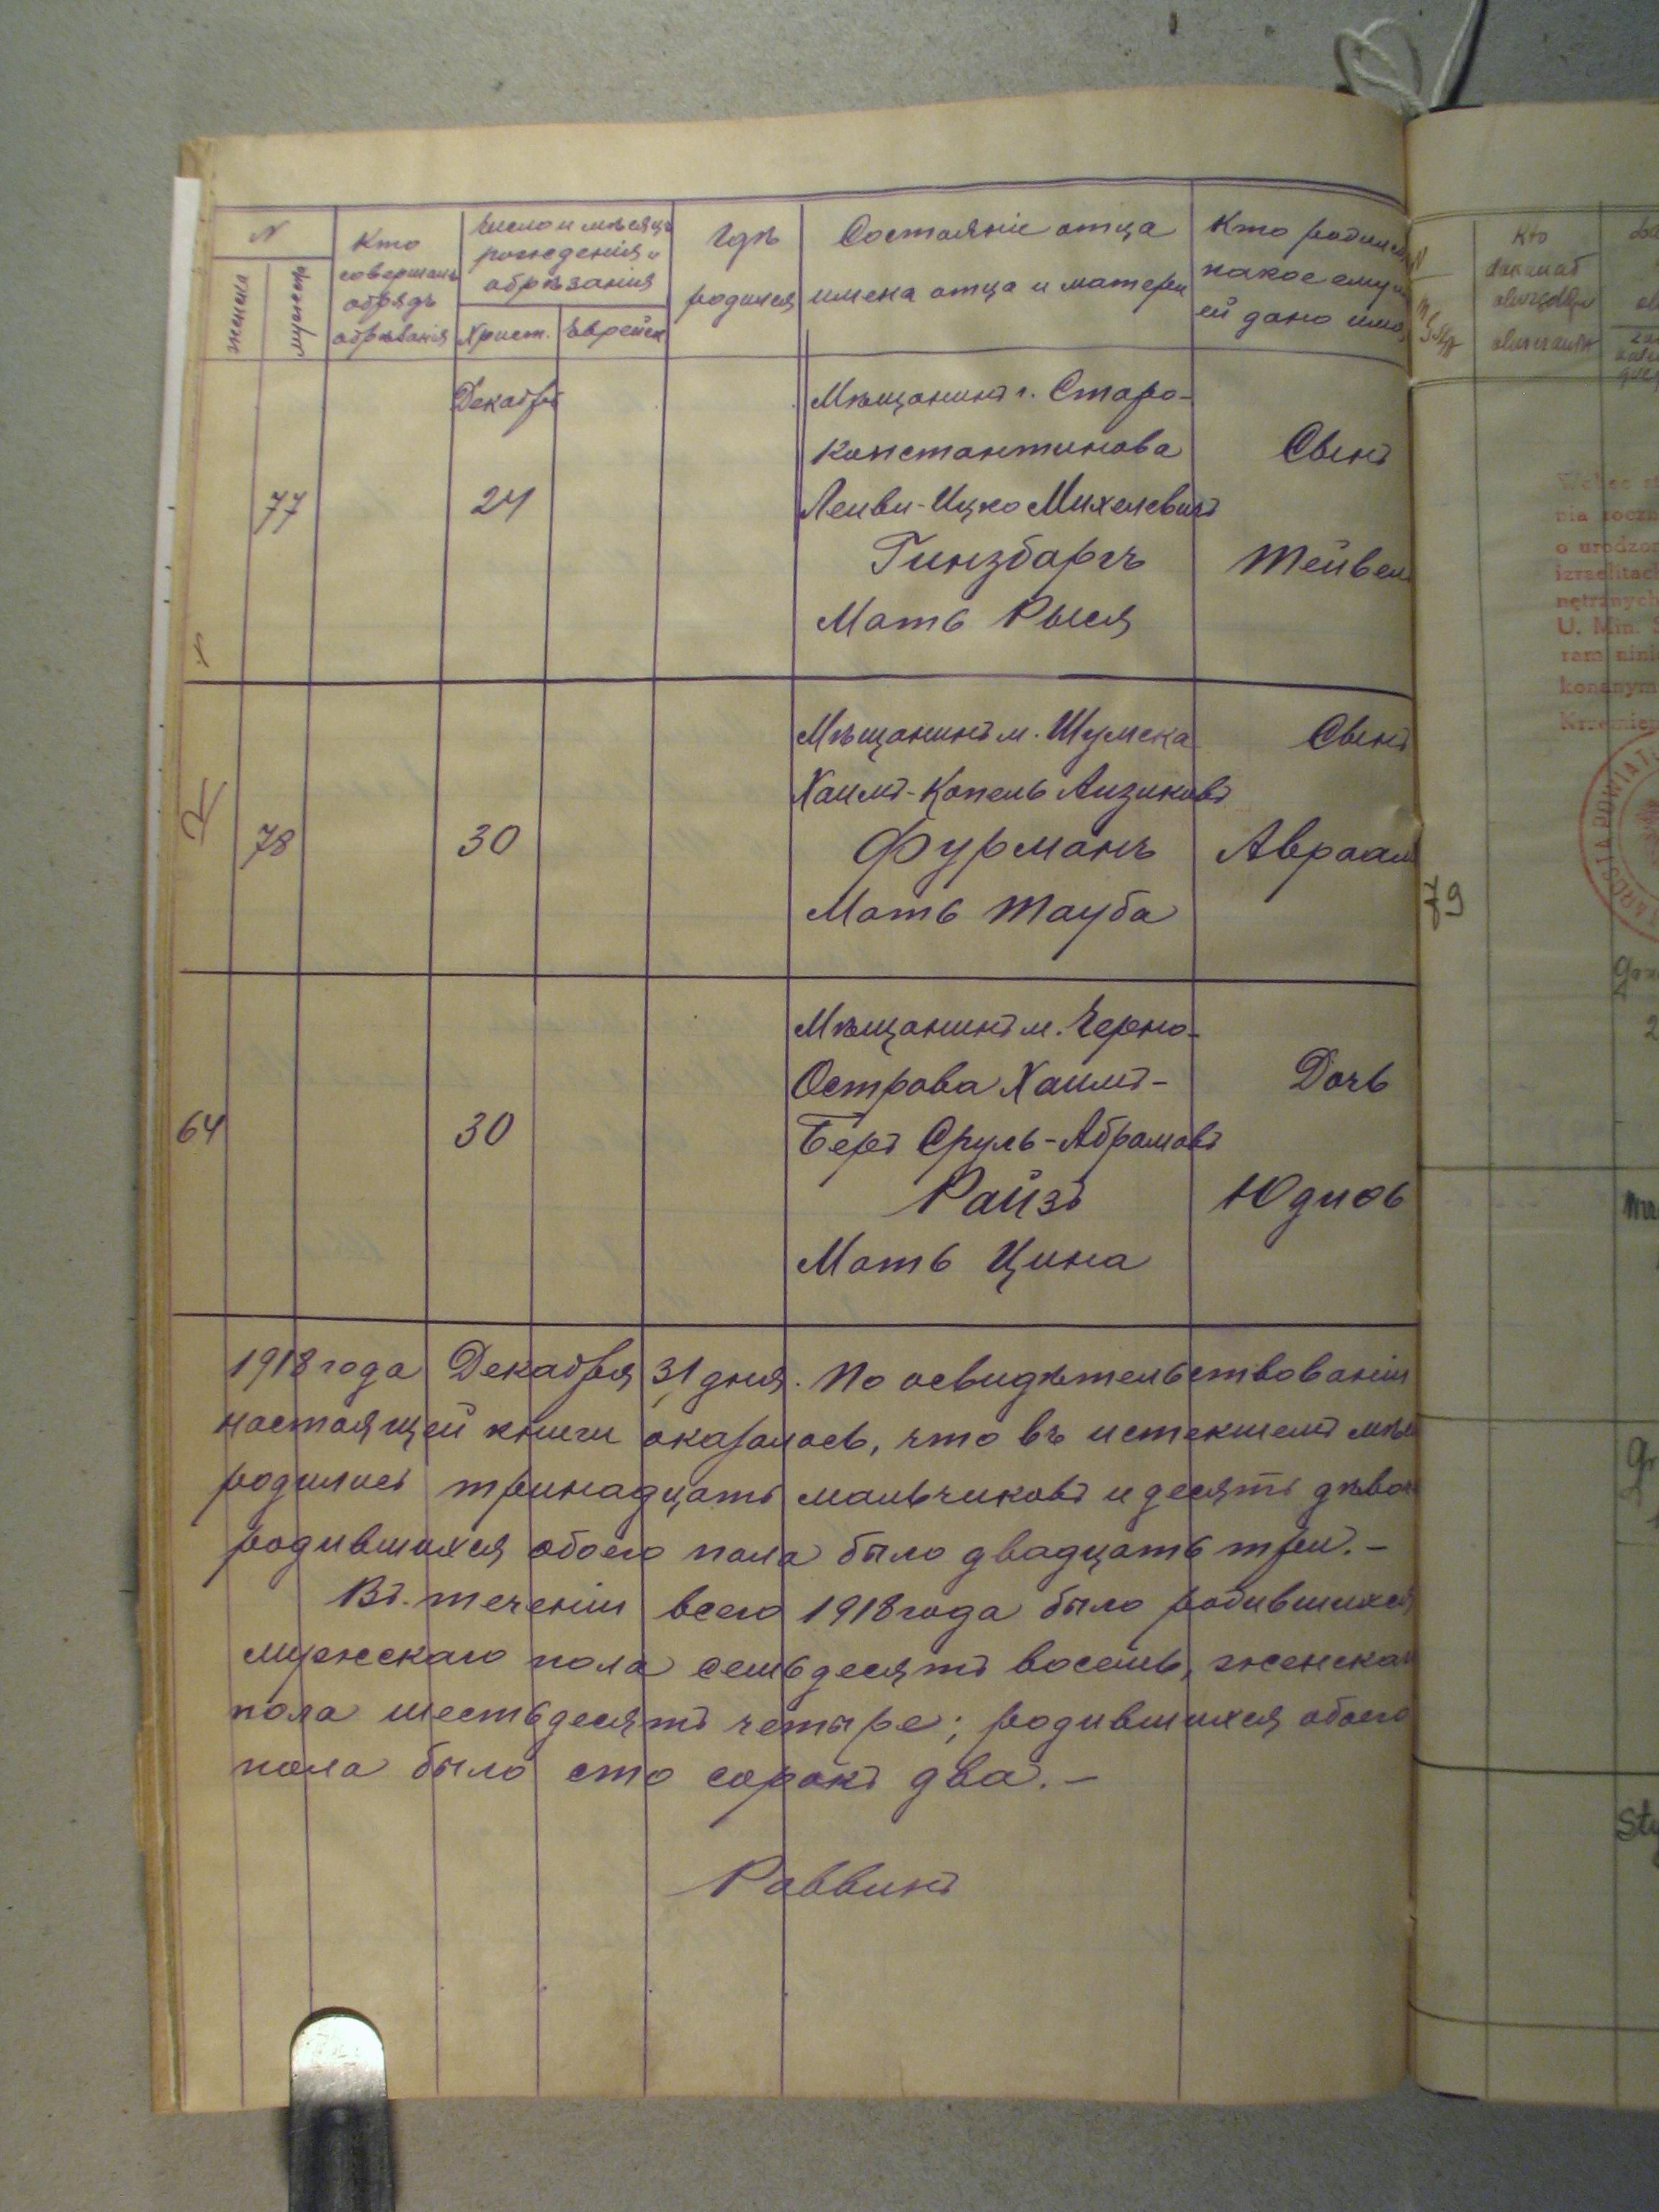 N
женска
мужеск
Кто
совершалъ
обрядъ
обрѣзанія
Число и мѣсяцъ
рожденія и
обрѣзанія
Христ.
Еврейск
Гдѣ
родился
Состояніе отца
имена отца и матери
Кто родился
какое ему и
ей дано имя
Декабрь
77
24
Мѣщанинъ г. Старо-
константинова
Лейви-Ицко Михелевичъ
Гинзбаргъ
Мать Рыся
Сынъ
Тейвель
78
30
Мѣщанинъ м. Шумска
Хаимъ-Копель Аизиковъ
Фурманъ
Мать Тауба
Сынъ
Авраам
64
30
Мѣщанинъ м. Черно-
Острова Хаимъ-
Беръ Сруль-Абрамовъ
Райзъ
Мать Цина
Дочь
Юдись
1918 года Декабря 31 дня. По освидѣтельствованіи
настоящей книги оказалось, что въ истекшемъ мѣся
родилось тринадцать мальчиковъ и десять дѣвоч
родившихся обоего пола было двадцать три. –
Въ теченіи всего 1918 года было родившихся
мужскаго пола семьдесятъ восемь, женскаго
пола шестьдесятъ четыре; родившихся обоего
пола было сто сорокъ два. –
Раввинъ
79
Kto
dokonał
obrzędu
obrzezania
nia roczn
o urodzon
izraelitach
nętrznych
U. Min. S
ram nini
konanym